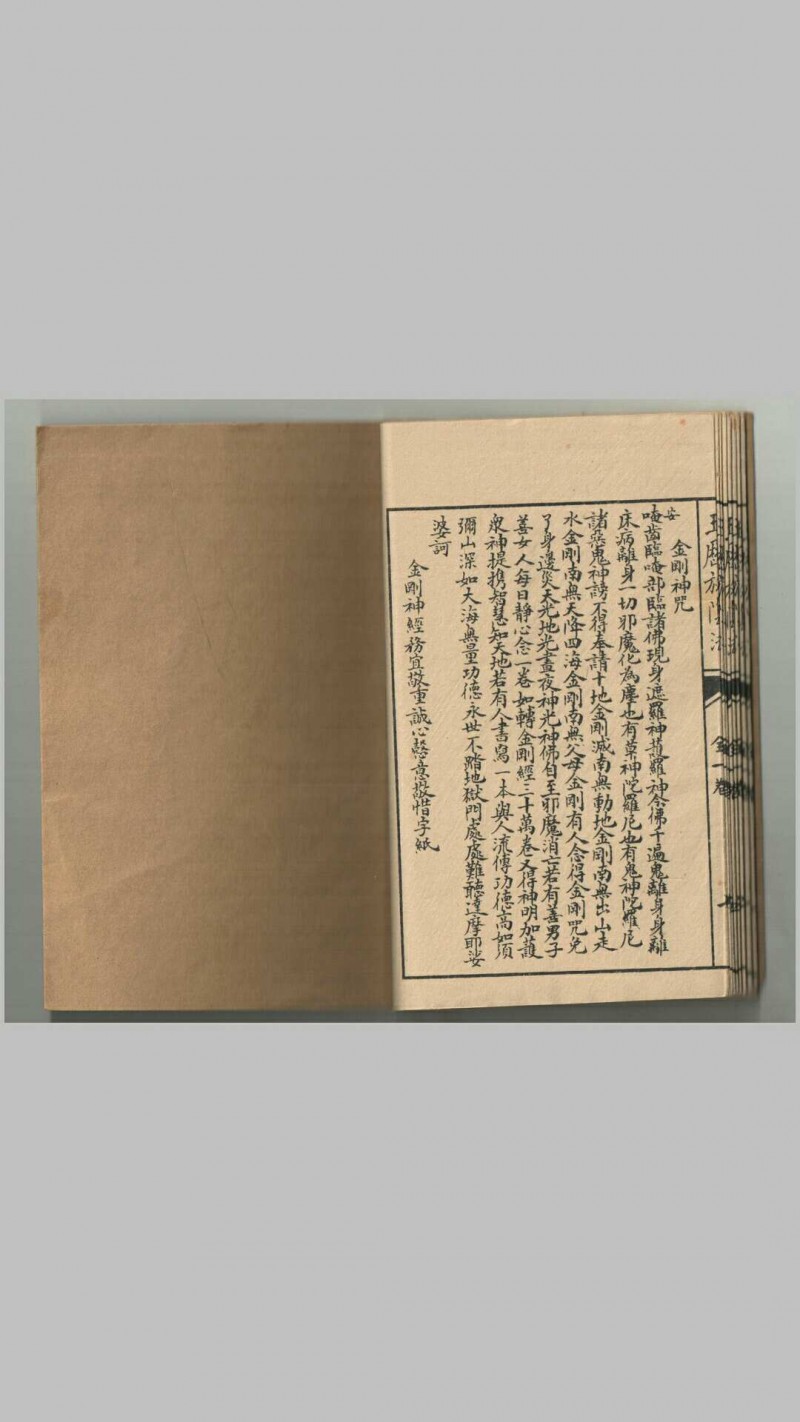 金剛神咒
安
唵齒臨唵部臨諸佛現身遮羅神護羅神念佛千遍鬼離身身離
床病離身一切邪魔化為塵也有草神陀羅尼也有鬼神陀羅尼
諸惡鬼神謗不得奉請十地金剛滅南無動地金剛南無出山走
水金剛南無天降四海金剛南無父母金剛有人念得金剛咒免
了身邊災天光地光晝夜神光神佛自至邪魔消亡若有善男子
善女人每日靜心念一卷如轉金剛經三十萬卷又得神明加護
眾神提携智慧知天地若有人書寫一本與人流傳功德高如須
彌山深如大海無量功德永世不踏地獄門處處難聽達摩耶娑
婆訶
金剛神經務宜敬重誠心慇意敬惜字紙